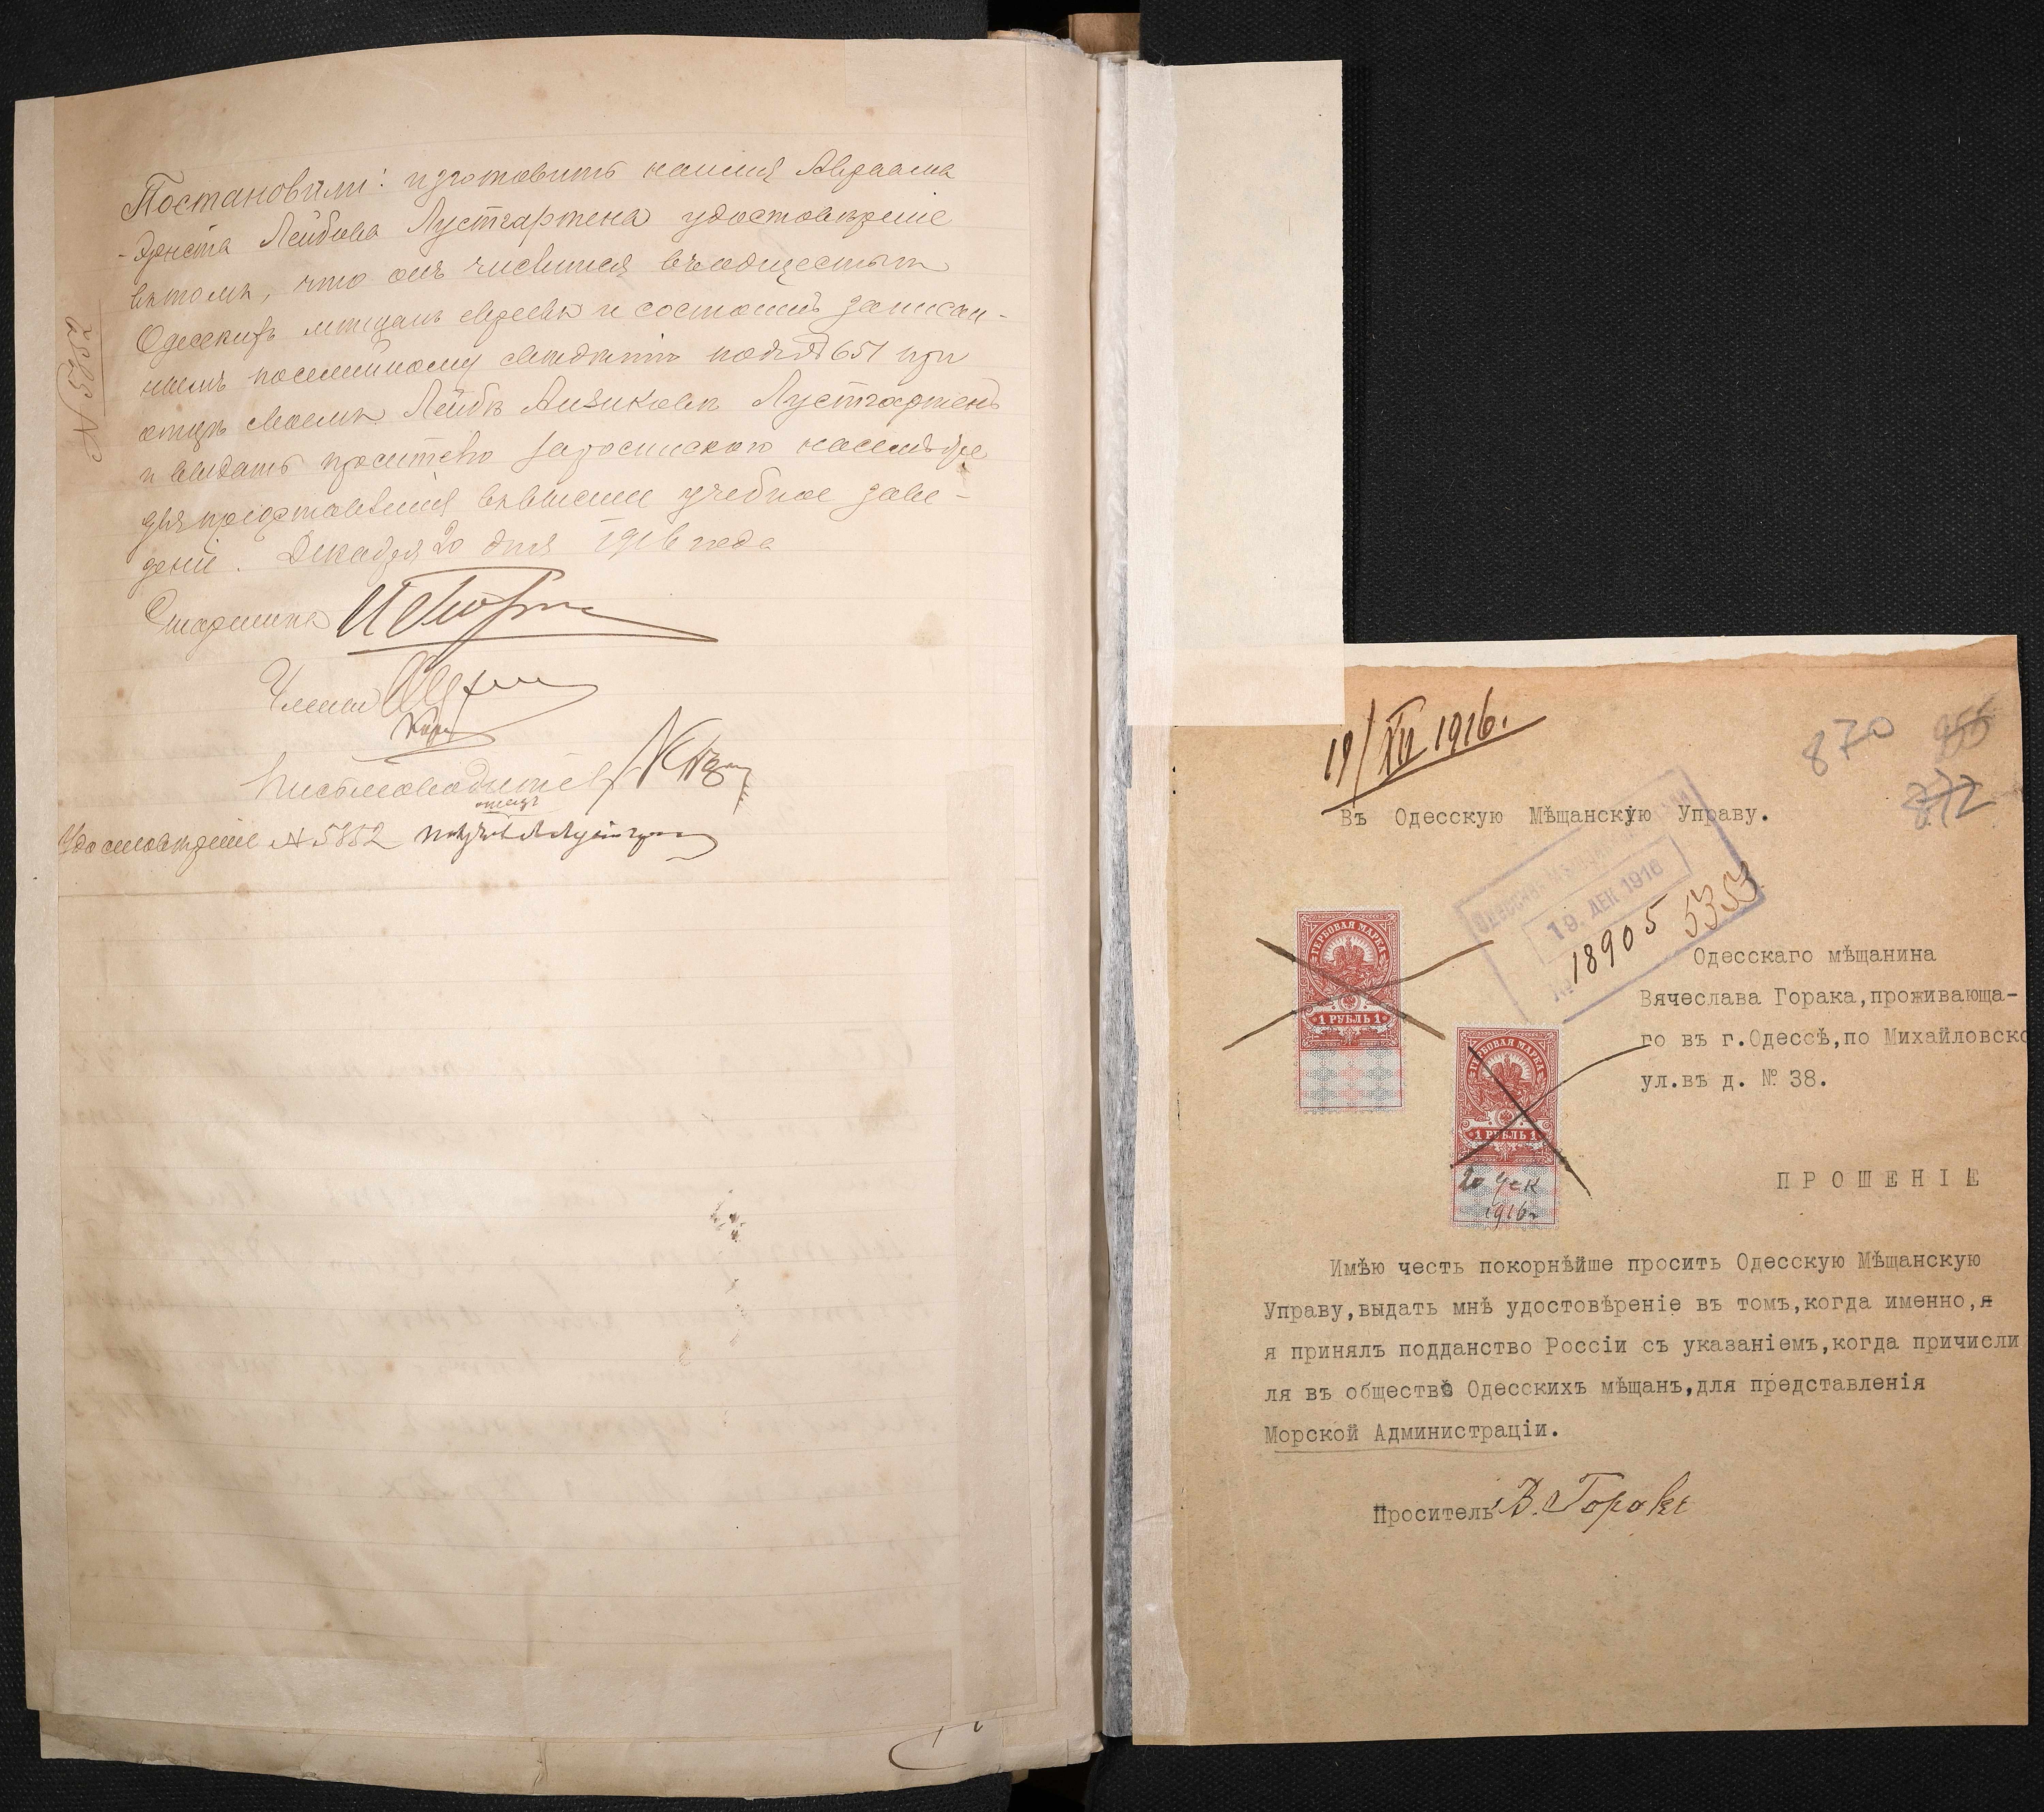 Постановили: изготовить на имя Авраама
-Эрнста Лейбова Лустгартена удостовѣреніе
въ томъ, что онъ числится въ обществѣ
Одесскихъ мѣщанъ евреевъ и состоитъ записан-
нымъ по семейному свидѣт. подъ № 651 при
отцѣ своемъ Лейбѣ Айзиковѣ Лустгартенъ
и выдать
для представленія въ высшее учебное заве-
деніе. Декабря 20 дня 1916 года
Старшина
Члены
Письмоводитель
отецъ
Удостовѣреніе № 5352
№ 5352
19/XII 1916.
870
956
872
Въ Одесскую Мѣщанскую Управу.
19. ДЕК 1916
№ 18905 5353
ГЕРБОВАЯ МАРКА
1 РУБЛЬ 1
ГЕРБОВАЯ МАРКА
1 РУБЛЬ 1
20 дек
1916г
Одесскаго мѣщанина
Вячеслава Горака,проживающа-
го въ г.Одессѣ,по Михайловско
ул.въ д. № 38.
ПРОШЕНІЕ
Имѣю честь покорнѣйше просить Одесскую Мѣщанскую
Управу,выдать мнѣ удостовѣреніе въ томъ,когда именно,я
я принялъ подданство Россіи съ указаніемъ,когда причисли
ля въ обществѣ Одесскихъ мѣщанъ,для представленія
Морской Администраціи.
Проситель В. Горакъ